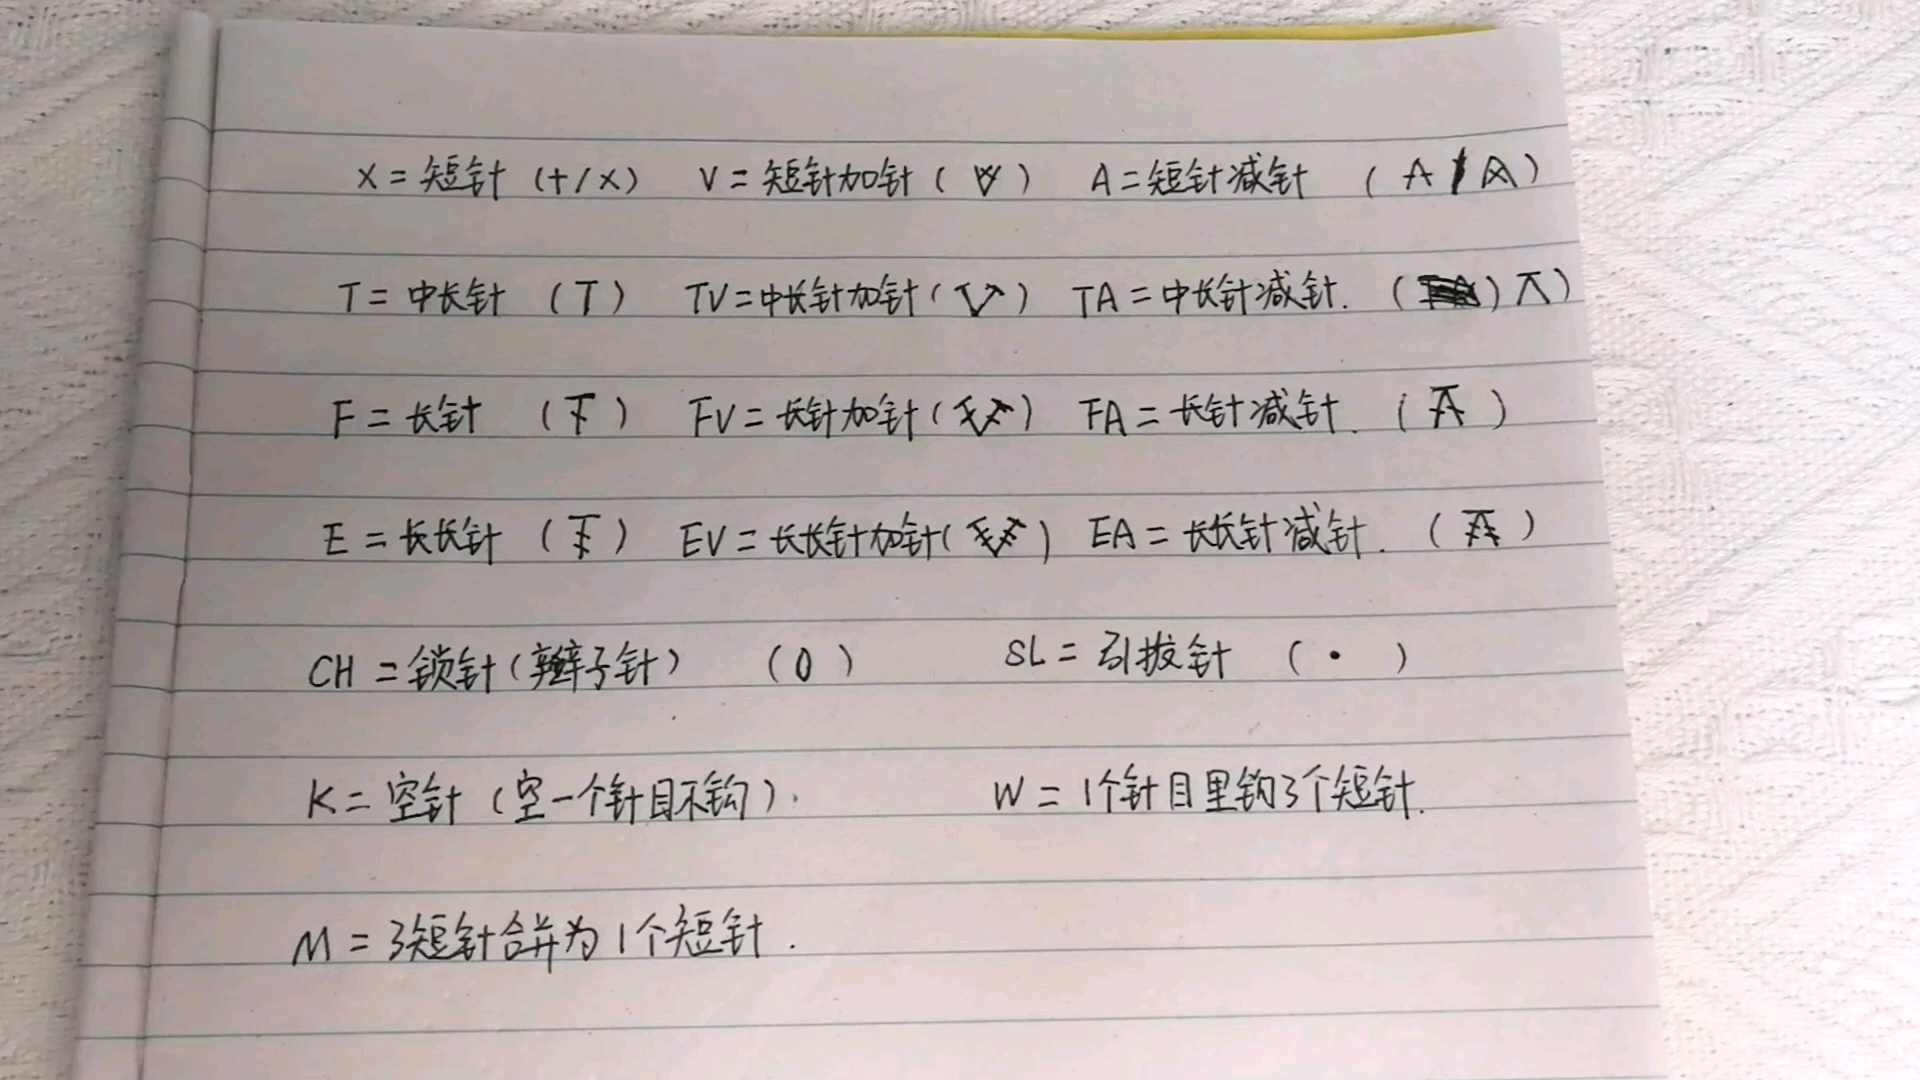 X = 短针 (+/×) V = 短针加针 ( ) A = 短针减针 ( )
T = 中长针 (T) TV = 中长针加针 ( ) TA = 中长针减针. ( )
F = 长针 ( ) FV = 长针加针 ( ) FA = 长针减针. ( )
E = 长长针 ( ) EV = 长长针加针 ( ) EA = 长长针减针. ( )
CH = 锁针 (辫子针) (0) SL = 引拔针 (•)
K = 空针 (空一个针目不钩). W = 1个针目里钩3个短针.
M = 3短针合并为1个短针.